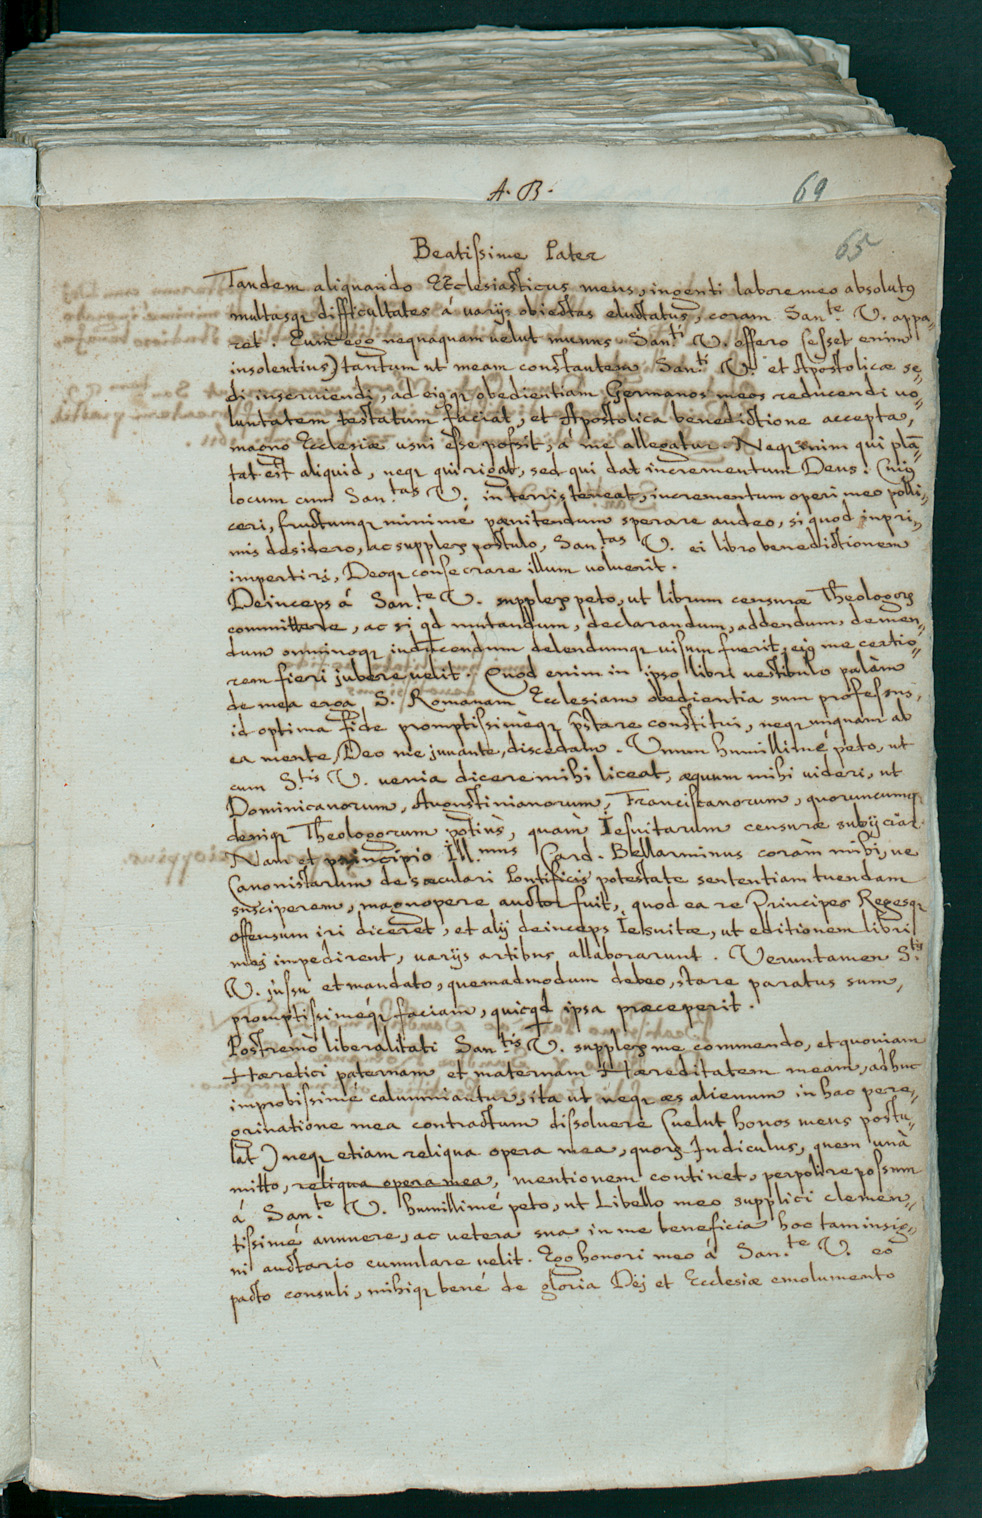 A. B.
69
65
Beatissime Pater
Tandem aliquando Ecclesiasticus meus, ingenti labore meo absolutꝰ
multasqꝫ difficultates á varijs obiectas eluctatus, coram San.te V. appa=
ret. Eum ego nequaquam velut munus San.ti V. offero (esset enim
insolentius) tantum ut meam constantem San.ti V. et Apostolicæ se=
di inserviendi, ad eiqꝫ obedientiam Germanos meos reducendi vo=
luntatem testatum faciat, et Apostolica benedictione accepta,
magno Ecclesiæ usui esse possit, á me allegatur. Neqꝫ enim qui plā=
tat est aliquid, neqꝫ qui rigat, sed qui dat incrementum Deus. Cuiꝰ
locum cum San.tas V. in terris teneat, incrementum operi meo polli=
ceri, fructumqꝫ minimé pænitendum sperare audeo, si quod inpri=
mis desidero, ac supplex postulo, San.tas V. ei libro benedictionem
impertiri, Deoqꝫ consecrare illum voluerit.
Deinceps á San.te V. supplex peto, ut librum censuræ Theologoꝝ
committere, ac si qd mutandum, declarandum, addendum, demen=
dum omninoqꝫ inducendum delendumqꝫ visum fuerit, eiꝰ me certio=
rem fieri jubere velit. Quod enim in ipso libri vestibulo palàm
de mea erga S. Romanam Ecclesiam obedientia sum professus,
id optima fide promptissimèqꝫ p̄stare constitui, neqꝫ unquam ab
ea mente, Deo me juvante, discedam. Unum humillimé peto, ut
cum S.tis V. venia dicere mihi liceat, æquum mihi videri, ut
Dominicanorum, Augustinianorum, Franciscanorum, quorumcumqꝫ
deniqꝫ Theologorum potiùs, quàm Iesuitarum censuræ subijciar.
Nam et principio Ill.mus Card. Bellarminus coràm mihi, ne
Canonistarum de sæculari Pontificis potestate sententiam tuendam
susciperem, magnopere auctor fuit, quod ea re Principes Regesqꝫ
offensum iri diceret, et alij deinceps Iesuitæ, ut editionem libri
mej impedirent, varijs artibus allaborarunt. Veruntamen S.tis
V. jussu et mandato, quemadmodum debeo, stare paratus sum,
promptissiméqꝫ faciam, quicqd ipsa præceperit.
Postremò liberalitati San.tis V. supplex me commendo, et quoniam
Hæretici paternam et maternam Hæreditatem meam, adhuc
improbissimé calumniantur, ita ut neqꝫ æs alienum in hac pere=
grinatione mea contractum dissolvere (velut honos meus postu=
lat) neqꝫ etiam reliqua opera mea, quoꝝ Indiculus, quem unà
mitto, reliqua opera mea, mentionem continet, perpolire possum
á San.te V. humillimé peto, ut Libello meo supplici clemen=
tissimé annuere, ac vetera sua in me beneficia hoc tam insig=
ni auctario cumulare velit. Ego honori meo á San.te V. eo
pacto consuli, mihiqꝫ bené de gloria Dej et Ecclesiæ emolumento